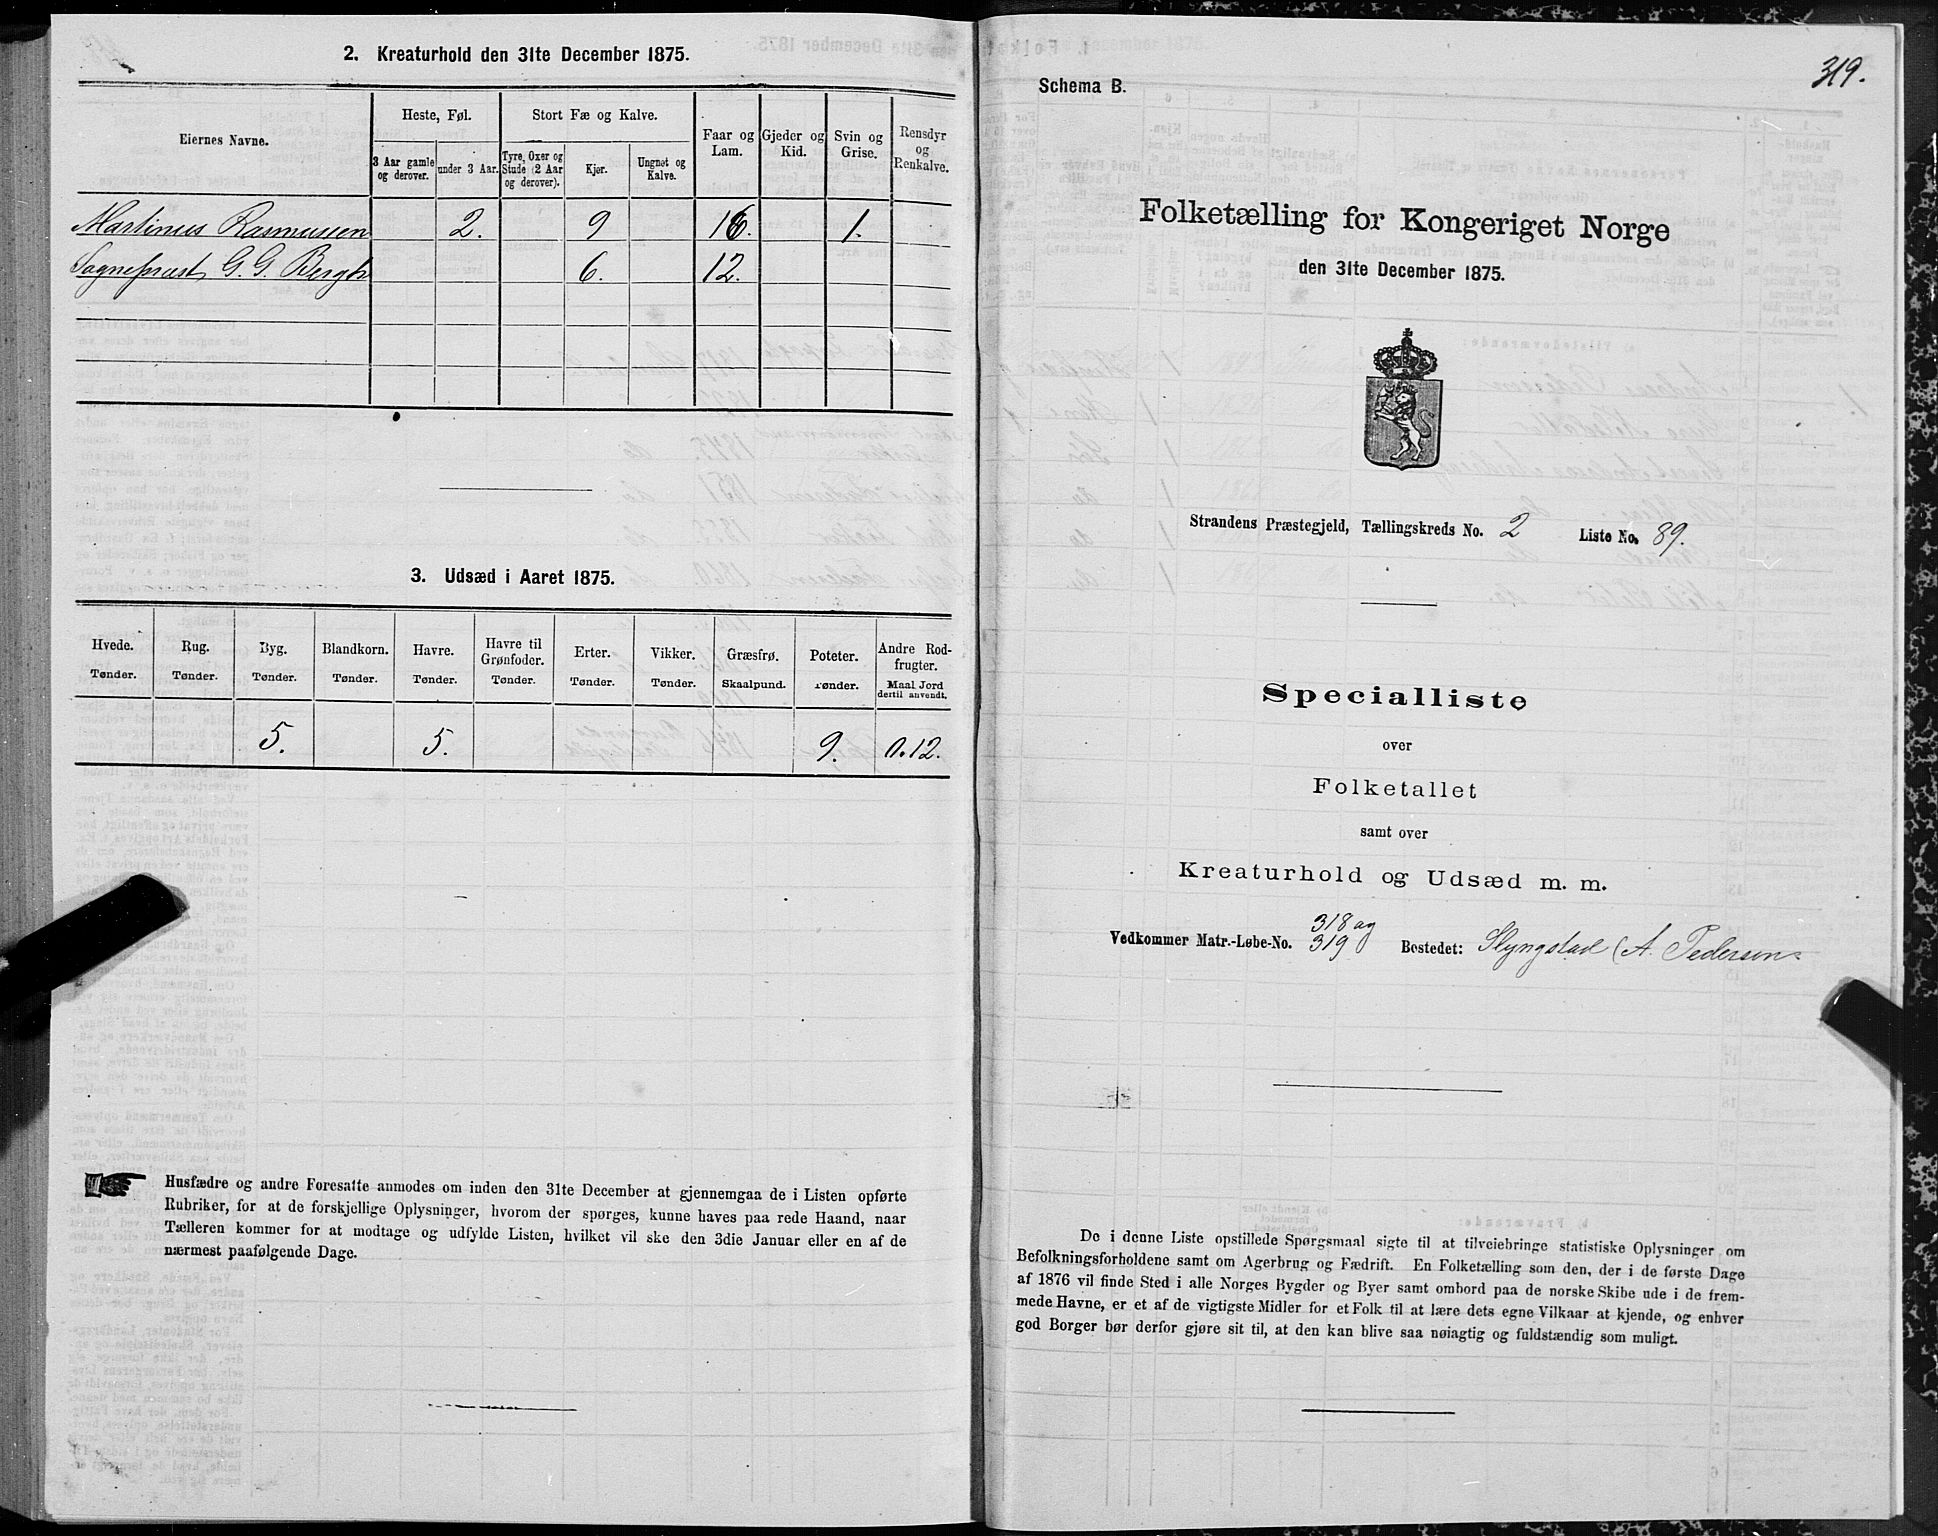 2. Kreaturhold den 31te December 1875.
Eiernes Navne.
Heste, Føl.
Stort Fæ og Kalve.
Faar og Lam.
Gjeder og Kid.
Svin og Grise.
Rensdyr og Renkalve.
3 Aar gamle og derover.
under 3 Aar.
Tyre, Oxer og Stude (2 Aar og derover).
Kjør.
Ungnøt og Kalve.
Martinus Rasmussen 2. 9 16. 1.
Sognepræst G. G. Bergh 6. 12.
3. Udsæd i Aaret 1875.
Hvede. Rug. Byg. Blandkorn. Havre. Havre til Grønfoder. Erter. Vikker. Græsfrø. Poteter. Andre Rodfrugter.
Tønder. Tønder. Tønder. Tønder. Tønder. Tønder. Tønder. Tønder. Skaalpund. Tønder. Maal Jord dertil anvendt.
5. 5. 9. 0.12.
Husfædre og andre Foresatte anmodes om inden den 31te December at gjennemgaa de i Listen opførte
Rubriker, for at de forskjellige Oplysninger, hvorom der spørges, kunne haves paa rede Haand, naar
Tælleren kommer for at modtage og udfylde Listen, hvilket vil ske den 3die Januar eller en af de
nærmest paafølgende Dage.
319.
Schema B.
Folketælling for Kongeriget Norge
den 31te December 1875.
Strandens Præstegjeld, Tællingskreds No. 2 Liste No. 89.
Specialliste
over
Folketallet
samt over
Kreaturhold og Udsæd m. m.
318 og
Vedkommer Matr.-Løbe-No. 319 Bostedet: Slyngstad (A. Pedersen
De i denne Liste opstillede Spørgsmaal sigte til at tilveiebringe statistiske Oplysninger om
Befolkningsforholdene samt om Agerbrug og Fædrift. En Folketælling som den, der i de første Dage
af 1876 vil finde Sted i alle Norges Bygder og Byer samt ombord paa de norske Skibe ude i de frem-
mede Havne, er et af de vigtigste Midler for et Folk til at lære dets egne Vilkaar at kjende, og enhver
god Borger bør derfor gjøre sit til, at den kan blive saa nøiagtig og fuldstændig som muligt.